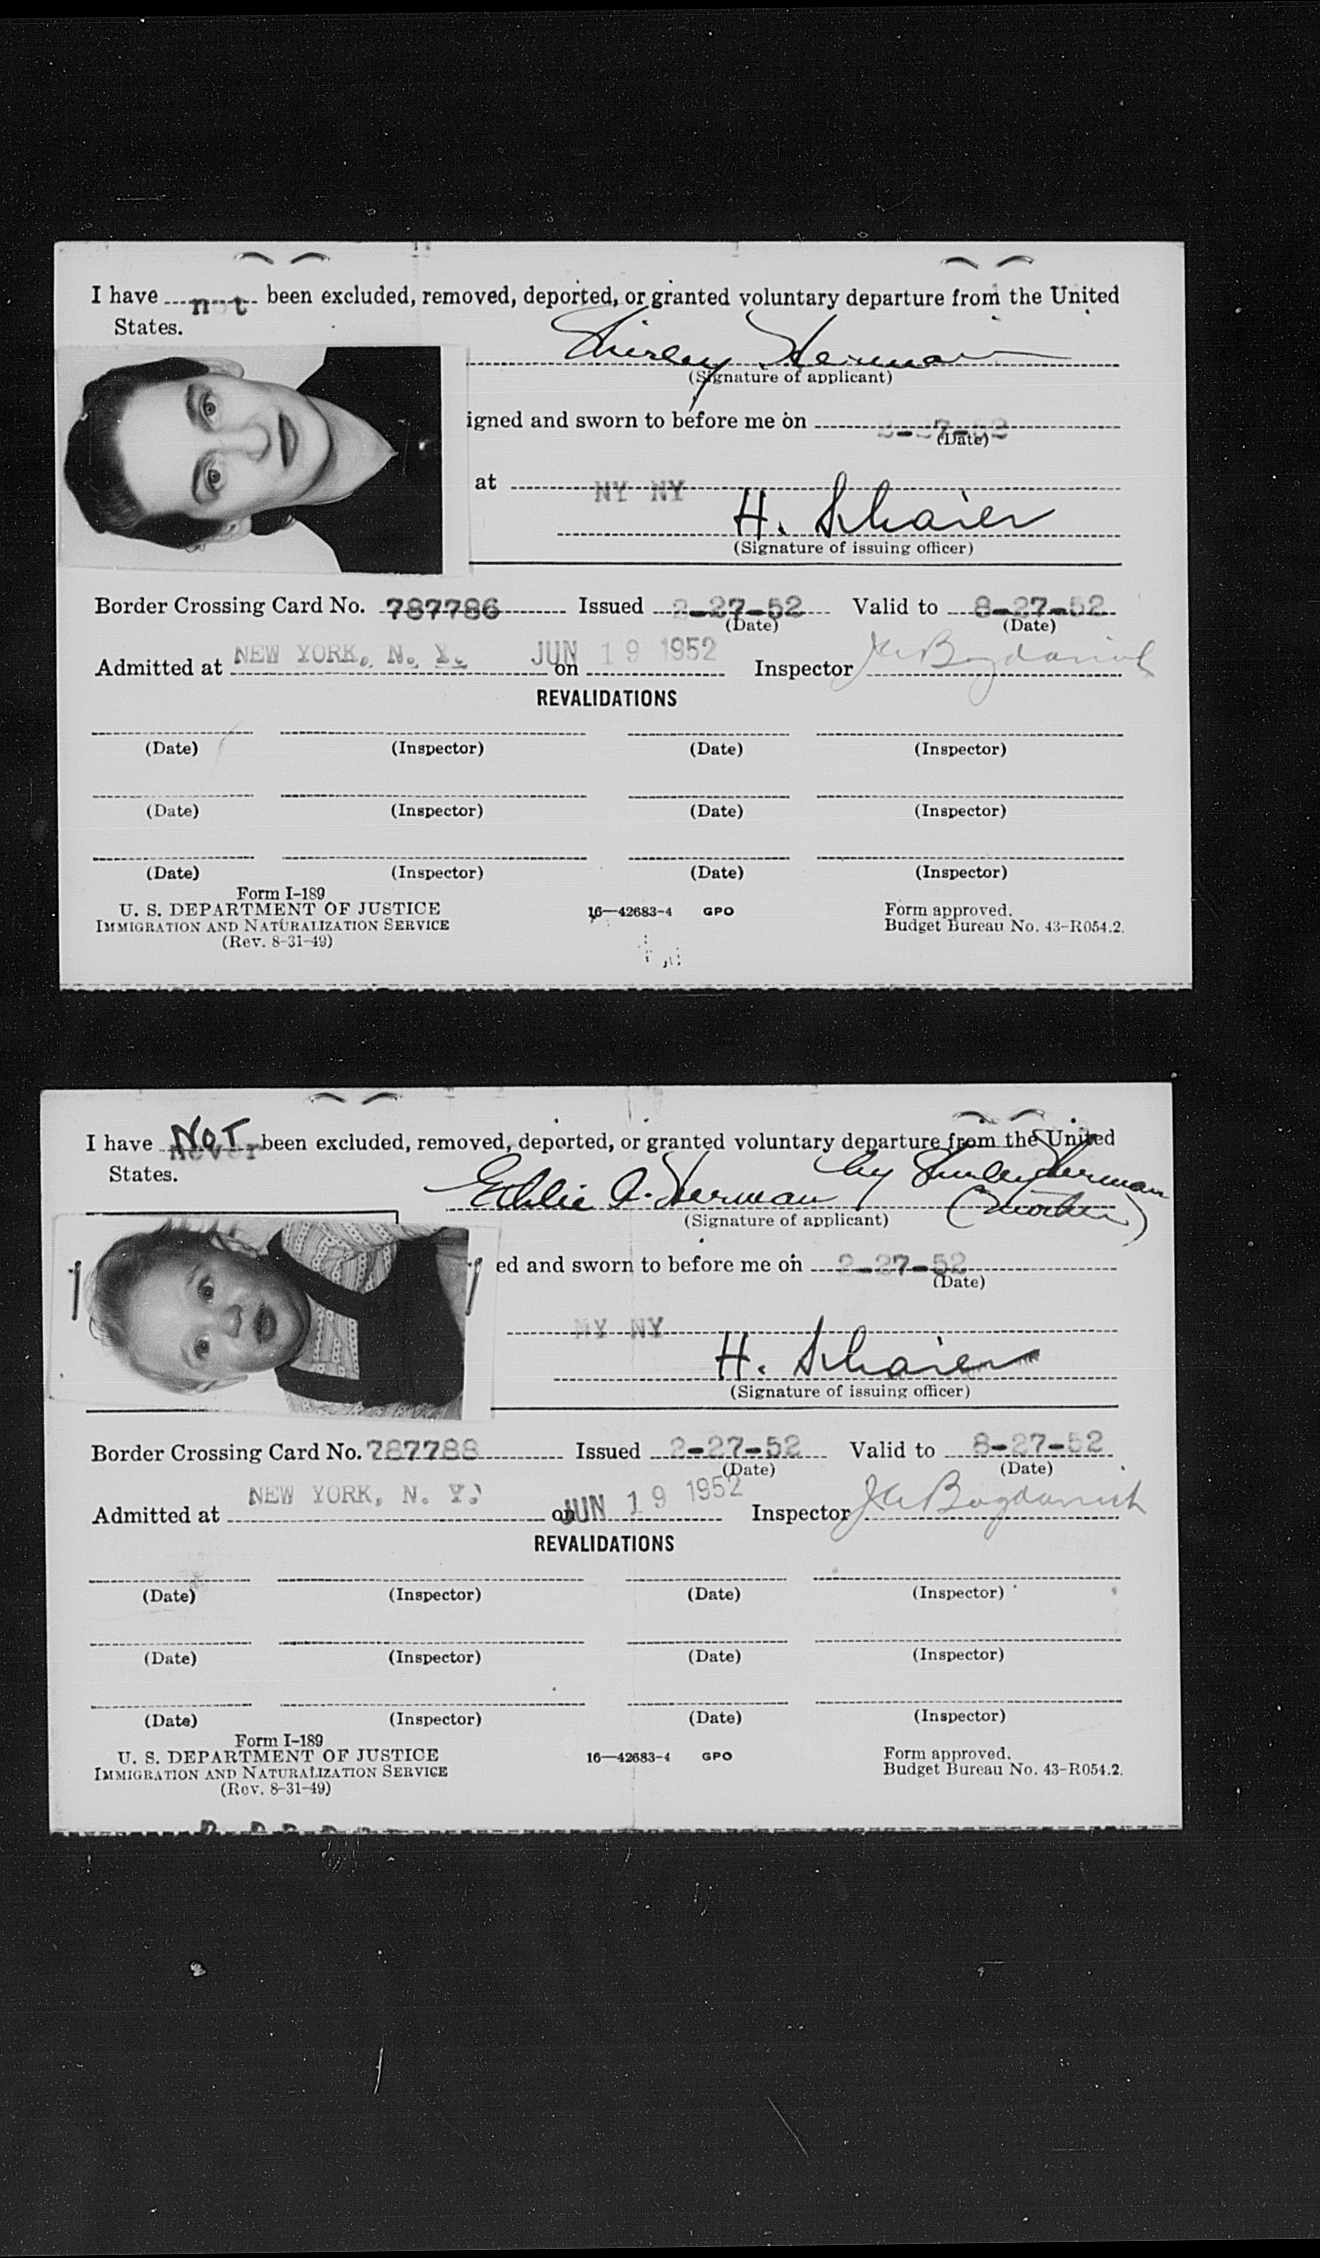 I have not been excluded, removed, deported, or granted voluntary departure from the United
States.
Shirley Herman
(Signature of applicant)
igned and sworn to before me on 2-27-52
(Date)
at NY NY
H. Schaier
(Signature of issuing officer)
Border Crossing Card No. 787786 Issued 2-27-52 Valid to 8-27-52
(Date) (Date)
Admitted at NEW YORK, N. Y. on JUN 19 1952 Inspector
REVALIDATIONS
(Date) (Inspector) (Date) (Inspector)
(Date) (Inspector) (Date) (Inspector)
(Date) (Inspector) (Date) (Inspector)
Form I-189
U. S. DEPARTMENT OF JUSTICE 16—42683-4 GPO Form approved.
IMMIGRATION AND NATURALIZATION SERVICE Budget Bureau No. 43-R054.2.
(Rev. 8-31-49)
I have NOT been excluded, removed, deported, or granted voluntary departure from the United
States.
A. Herman by Shirley Herman
(Signature of applicant) (Mother)
ed and sworn to before me on 2-27-52
(Date)
NY NY
H. Schaier
(Signature of issuing officer)
Border Crossing Card No. 787788 Issued 2-27-52 Valid to 8-27-52
(Date) (Date)
Admitted at NEW YORK, N. Y. on JUN 19 1952 Inspector
REVALIDATIONS
(Date) (Inspector) (Date) (Inspector)
(Date) (Inspector) (Date) (Inspector)
(Date) (Inspector) (Date) (Inspector)
Form I-189
U. S. DEPARTMENT OF JUSTICE 16—42683-4 GPO Form approved.
IMMIGRATION AND NATURALIZATION SERVICE Budget Bureau No. 43-R054.2.
(Rev. 8-31-49)